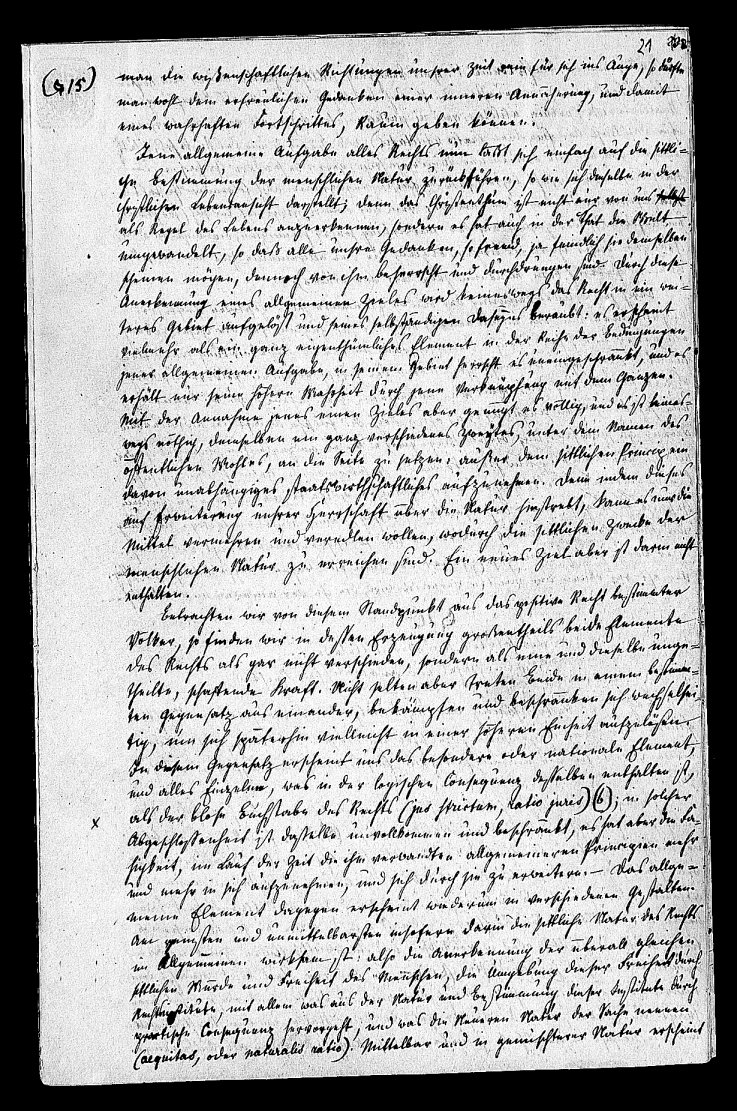 21
(§15)
man die wissenschaftlichen Richtungen unsrer Zeit rein für sich ins Auge, so dürfte
man wohl dem erfreulichen Gedanken einer inneren Annäherung, und damit
eines wahrhaften Fortschrittes, Raum geben können.
Jene allgemeine Aufgabe alles Rechts nun läßt sich einfach auf die sittli-
che Bestimmung der menschlichen Natur zurückführen, so wie sich dieselbe in der
christlichen Lebensansicht darstellt; denn das Christenthum ist nicht nur von uns
als Regel des Lebens anzuerkennen, sondern es hat auch in der That die Welt
umgewandelt, so daß alle unsre Gedanken, so fremd, ja feindlich sie demselben
scheinen mögen, dennoch von ihm beherrscht und durchdrungen sind. Durch diese
Anerkennung eines allgemeinen Zieles wird keineswegs das Recht in ein wei-
teres Gebiet aufgelöst und seines selbständigen Daseyns beraubt: es erscheint
vielmehr als ein ganz eigenthümliches Element in der Reihe der Bedingungen
jener allgemeinen Aufgabe, in seinem Gebiet herrscht es unumgeschränkt, und es
erhält nur seine höhere Wahrheit durch jene Verknüpfung mit dem Ganzen.
Mit der Annahme jenes einen Zieles aber genügt es völlig, und es ist keines-
wegs nöthig, demselben ein ganz verschiedenes zweytes, unter dem Namen des
öffentlichen Wohles, an die Seite zu setzen: außer dem sittlichen Princip ein
davon unabhängiges staatswirthschaftliches aufzunehmen. Denn indem dieses
auf Erweiterung unsrer Herrschaft über die Natur hinstrebt, kann es nur die
Mittel vermehren und veredlen wollen, wodurch die sittlichen Zwecke der
menschlichen Natur zu erreichen sind. Ein neues Ziel aber ist darin nicht
enthalten.
Betrachten wir von diesem Standpunkt aus das positive Recht bestimmter
Völker, so finden wir in dessen Erzeugung großentheils beide Elemente
des Rechts als gar nicht verschieden, sondern als eine und dieselbe unge-
theilte, schaffende Kraft. Nicht selten aber treten beide in einem bestimm-
ten Gegensatz aus einander, bekämpfen und beschränken sich wechselsei-
tig, um sich späterhin vielleicht in einer höheren Einheit aufzulösen.
In diesem Gegensatz erscheint uns das besondere oder nationale Element,
und alles Einzelne, was in der logischen Consequenz desselben enthalten ist,
als der bloße Buchstabe des Rechts (jus strictum, ratio juris)(b); in solcher
x
Abgeschlossenheit ist dasselbe unvollkommen und beschränkt, es hat aber die Fä-
higkeit, im Lauf der Zeit die ihm verwandten allgemeineren Principien mehr
und mehr in sich aufzunehmen, und sich durch sie zu erweitern. – Das allge-
meine Element dagegen erscheint wiederum in verschiedenen Gestalten.
Am reinsten und unmittelbarsten insofern darin die sittliche Natur des Rechts
im Allgemeinen wirksam ist: also die Anerkennung der überall gleichen
sittlichen Würde und Freiheit des Menschen, die Umgebung dieser Freiheit durch
Rechtsinstitute, mit allem was aus der Natur und Bestimmung dieser Institute durch
praktische Consequenz hervorgeht, und was die Neueren Natur der Sache nennen
(aequitas, oder naturalis ratio). Mittelbar und in gemischterer Natur erscheint